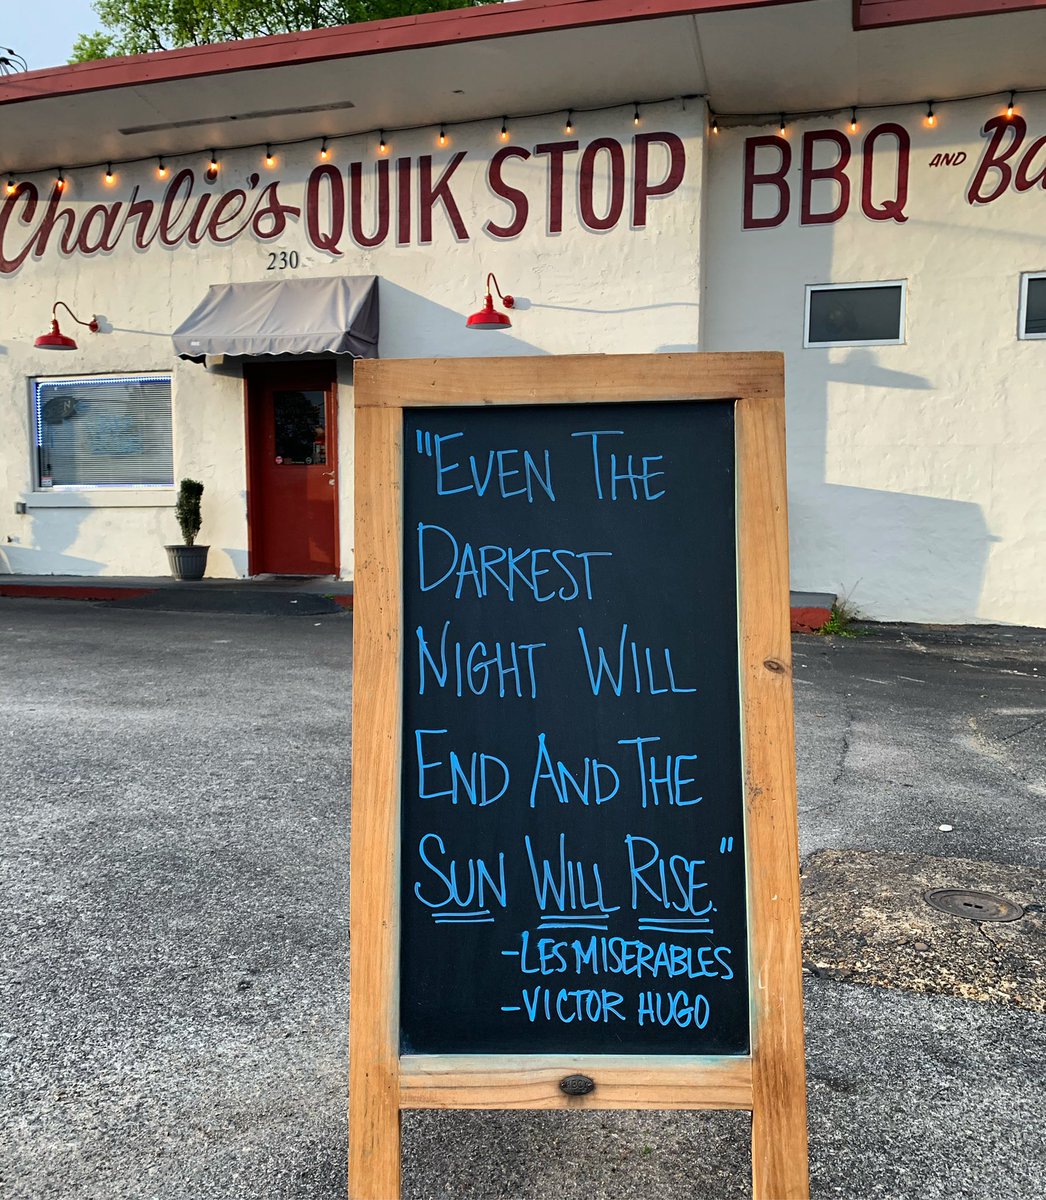 Charlie's QUIK STOP BBQ AND Ba
230
"EVEN THE
DARKEST
NIGHT WILL
END AND THE
SUN WILL RISE."
-LES MISERABLES
-VICTOR HUGO